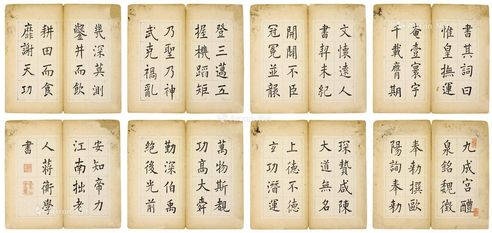 書其詞曰
惟皇撫運
奄壹寰宇
千載膺期
文懷遠人
書契未紀
開闢不臣
冠冕並襲
登三邁五
握機蹈矩
乃聖乃神
武克禍亂
幾深莫測
鑿井而飲
耕田而食
靡謝天功
九成宮醴
泉銘魏徵
奉勅撰歐
陽詢奉勅
琛贄咸陳
大道無名
上德不德
玄功潛運
萬物斯覩
功高大舜
勤深伯禹
絕後光前
安知帝力
江南拙老
人蔣衡學
書